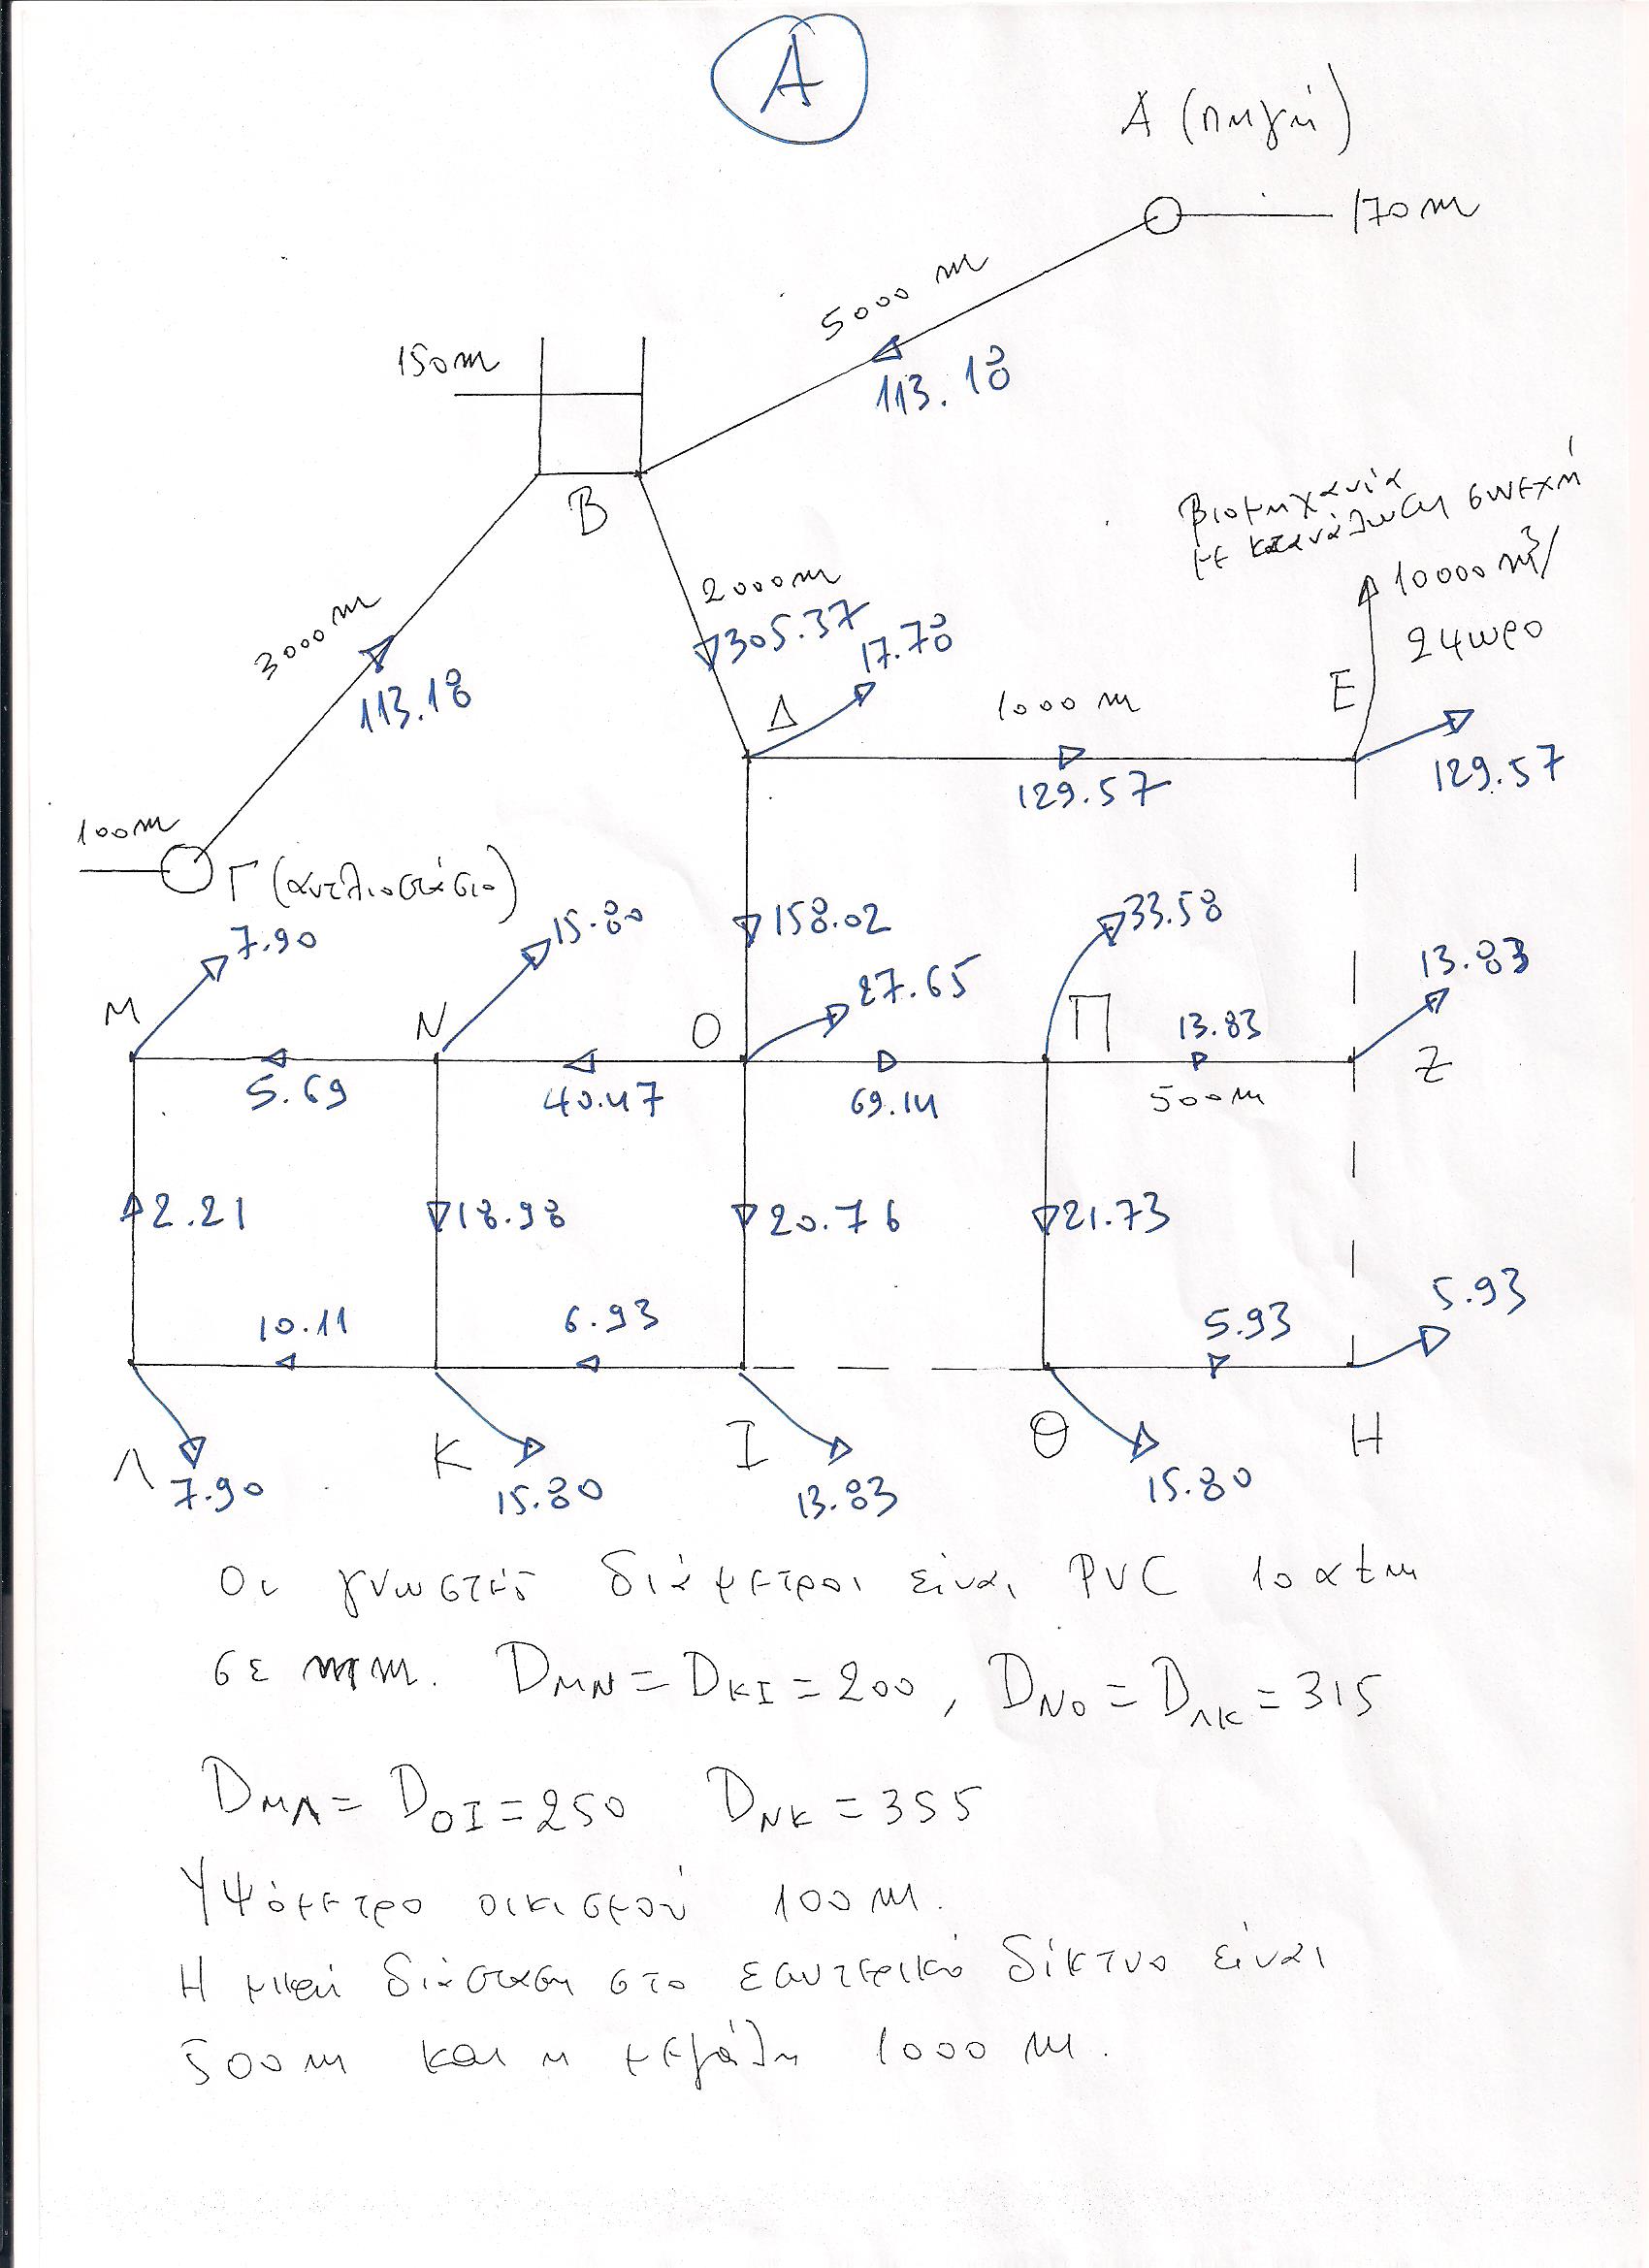 A
A (πηγή)
170 m
5000 m
113.18
150 m
B
βιομηχανία
με κατανάλωση συνεχή
10000 m³/
24ωρο
2000 m
305.37
17.78
3000 m
113.18
Δ
1000 m
E
129.57
129.57
100 m
Γ (αντλιοστάσιο)
7.90
15.80
158.02
33.58
27.65
13.83
M
N
O
Π
13.83
Z
5.69
40.47
69.14
500 m
2.21
18.98
20.76
21.73
10.11
6.93
5.93
5.93
Λ
K
I
Θ
H
7.90
15.80
13.83
15.80
Οι γνωστές διάμετροι είναι PVC 10 atm
σε mm. D_MN = D_KI = 200, D_NO = D_ΛK = 315
D_MΛ = D_OI = 250 D_NK = 355
Υψόμετρο οικισμού 100 m.
Η μικρή διάσταση στο εσωτερικό δίκτυο είναι
500 m και η μεγάλη 1000 m.